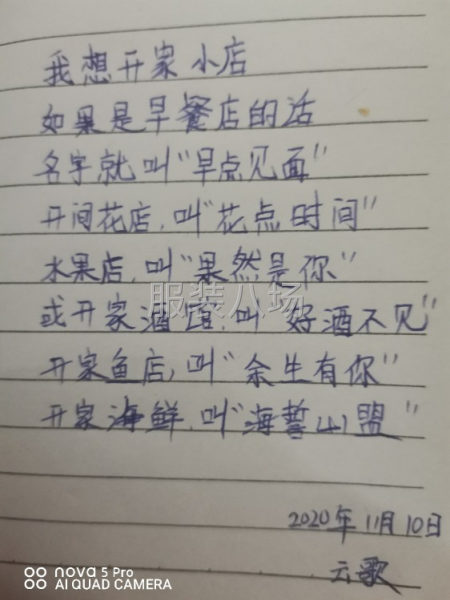 我想开家小店
如果是早餐店的话
名字就叫"早点见面"
开间花店,叫"花点时间"
水果店,叫"果然是你"
或开家酒馆,叫"好酒不见"
开家鱼店,叫"余生有你"
开家海鲜,叫"海誓山盟"
2020年11月10日
云歌
服装八场
nova 5 Pro
AI QUAD CAMERA